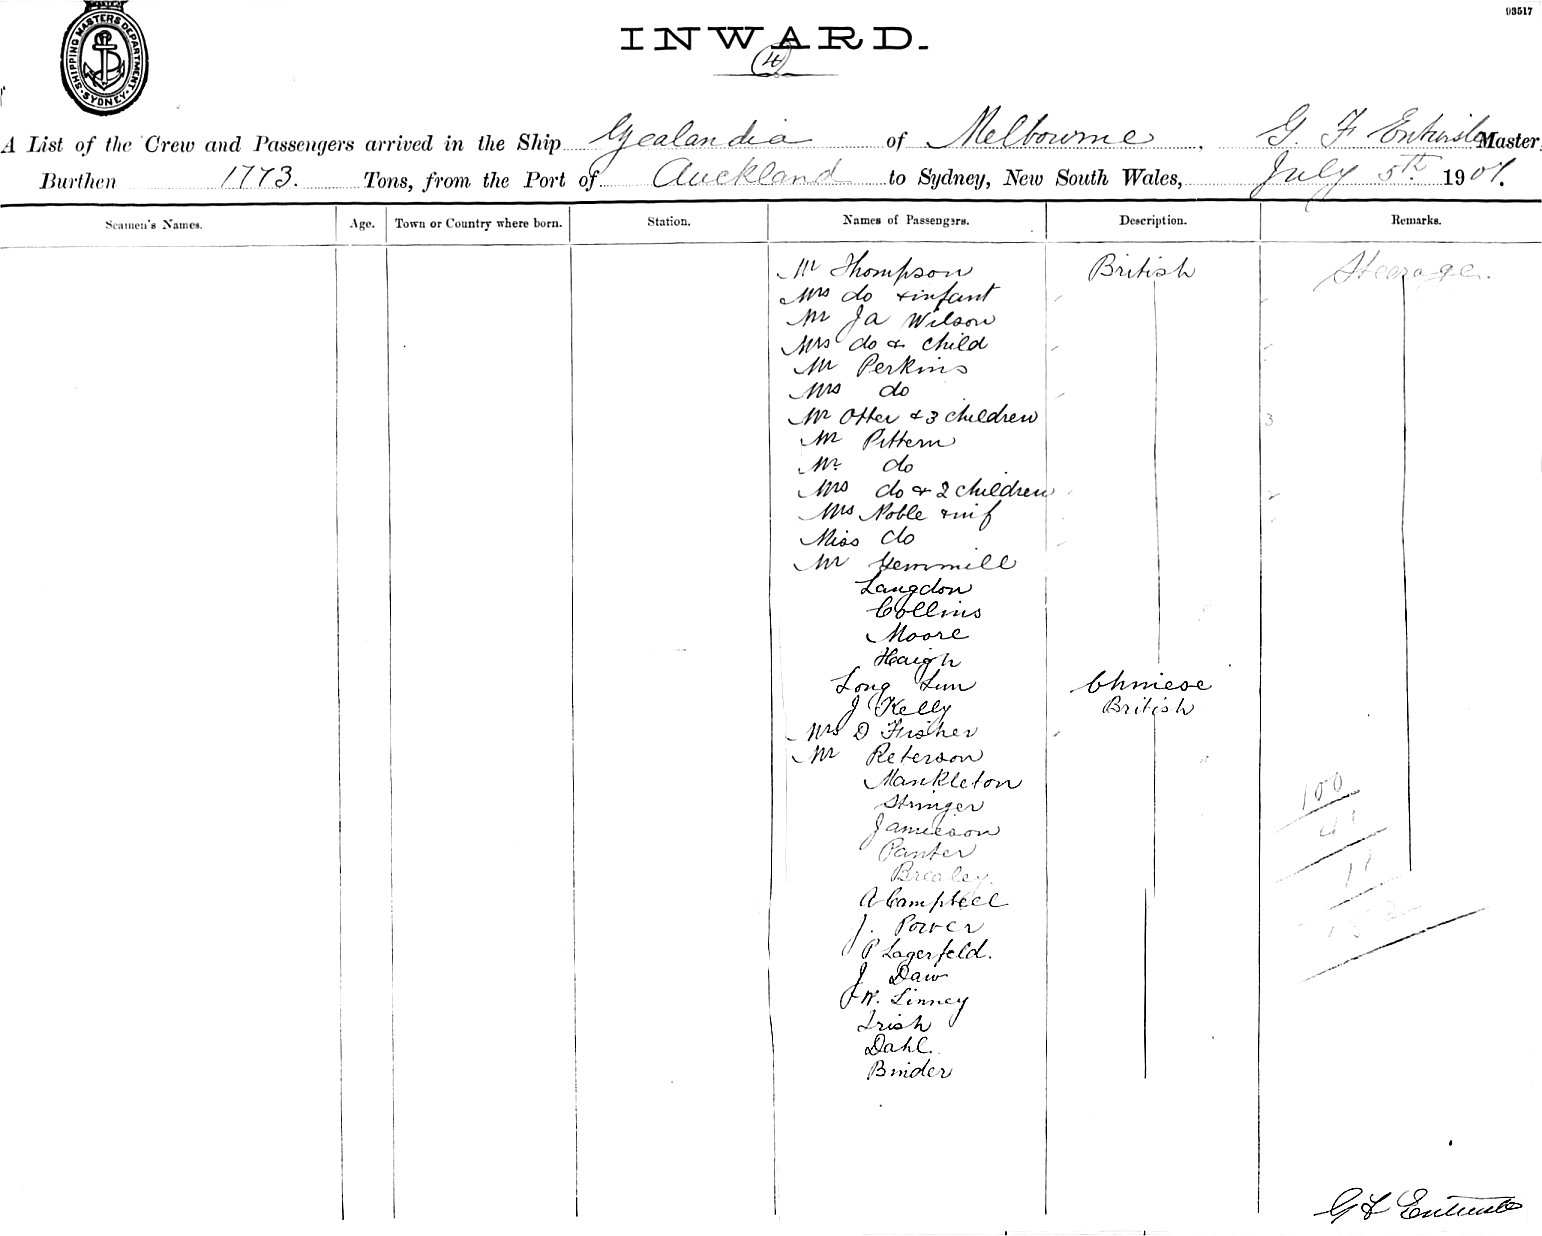 93517
SHIPPING MASTERS DEPARTMENT
SYDNEY
INWARD.
(4)
A List of the Crew and Passengers arrived in the Ship Zealandia of Melbourne, G. F. Master,
Burthen 1773. Tons, from the Port of Auckland to Sydney, New South Wales, July 5th 1901.
Seamen's Names. Age. Town or Country where born. Station. Names of Passengers. Description. Remarks.
Mr Thompson British Steerage.
Mrs do & infant
Mr Ja Wilson
Mrs do & child
Mr Perkins
Mrs do
Mr Otter & 3 children 3
Mr Pittern
Mr do
Mrs do & 2 children
Mrs Noble & inf
Miss do
Mr Gemmill
Langdon
Collins
Moore
Haigh
Long Sun Chinese
J Kelly British
Mrs D Fisher
Mr Peterson
Mankleton
Stringer
Jamieson
Panter
Brealey.
A Campbell
J. Power
P Lagerfeld.
J Daw
J W. Linney
Irish
Dahl.
Binder
100
41
11
152